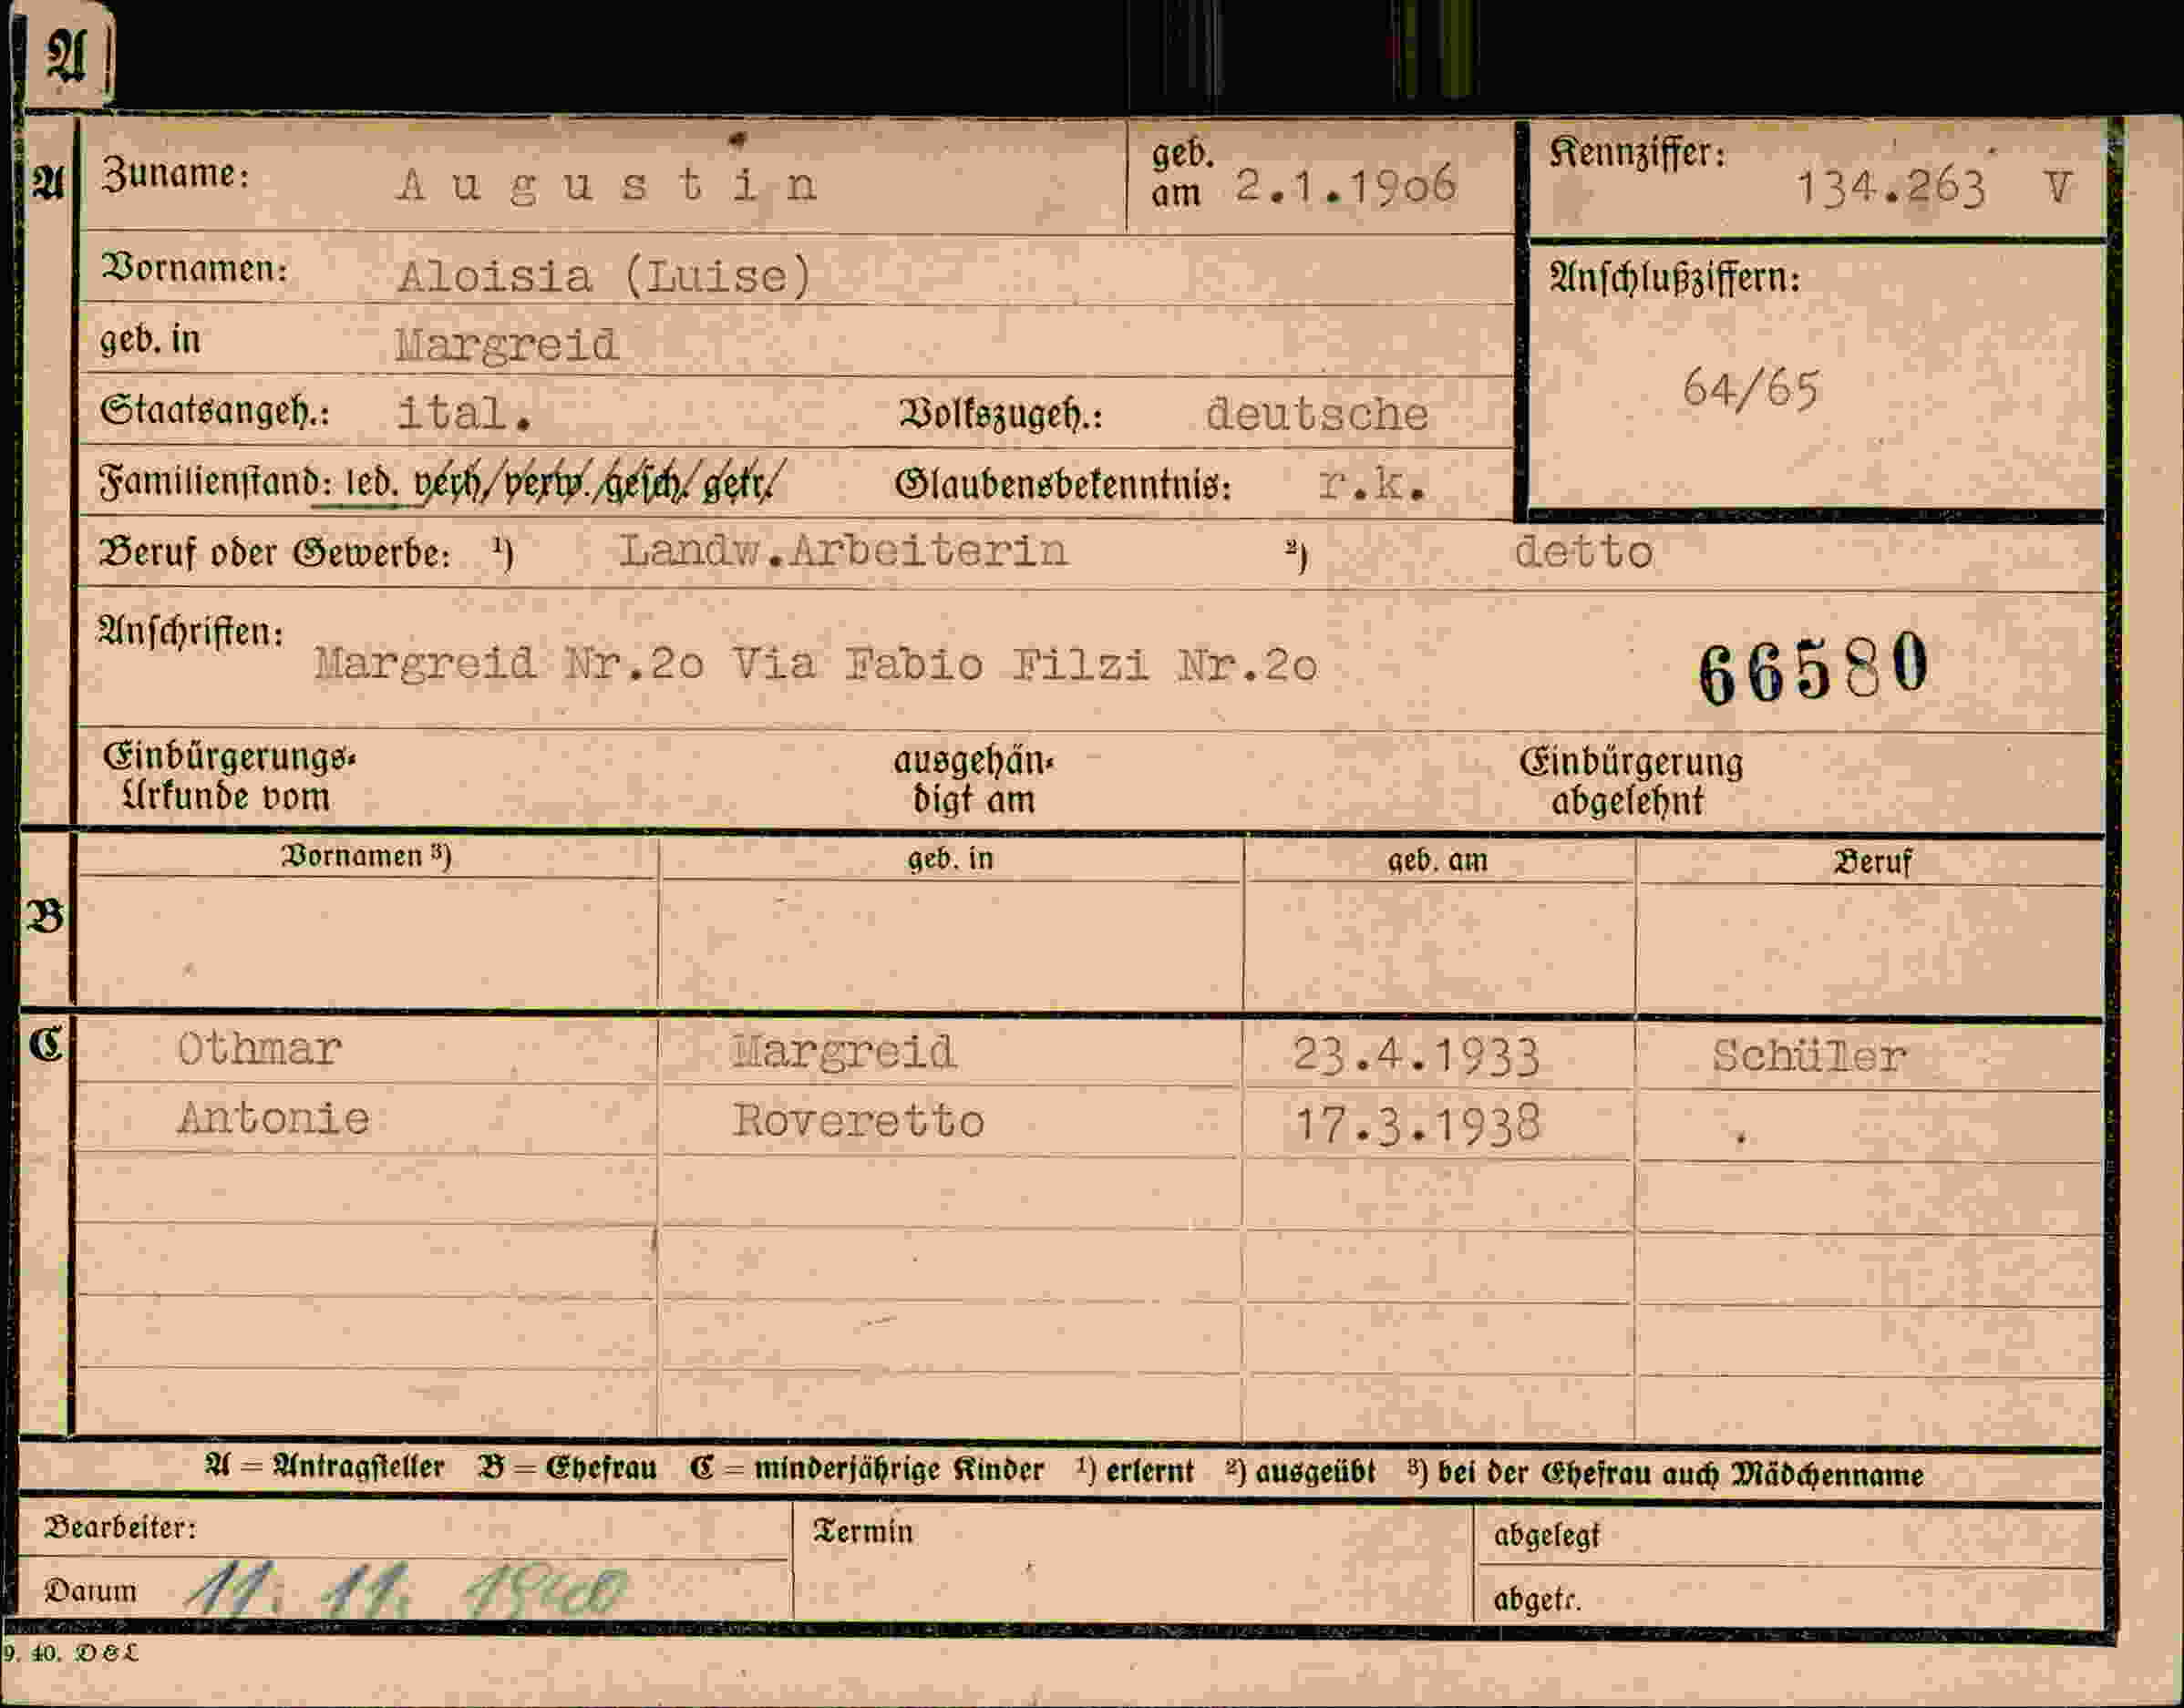 A
A Zuname: Augustin geb. am 2.1.19o6 Kennziffer: 134.263 V
Vornamen: Aloisia (Luise) Anschlußziffern:
geb. in Margreid 64/65
Staatsangeh.: ital. Volkszugeh.: deutsche
Familienstand: led. verh/verw./gesch/getr/ Glaubensbekenntnis: r.k.
Beruf oder Gewerbe: ¹) Landw.Arbeiterin ²) detto
Anschriften: Margreid Nr.2o Via Fabio Filzi Nr.2o 66580
Einbürgerungs- ausgehän- Einbürgerung
Urkunde vom digt am abgelehnt
Vornamen ³) geb. in geb. am Beruf
B
C Othmar Margreid 23.4.1933 Schüler
Antonie Roveretto 17.3.1938
A = Antragsteller B = Ehefrau C = minderjährige Kinder ¹) erlernt ²) ausgeübt ³) bei der Ehefrau auch Mädchenname
Bearbeiter: Termin abgelegt
Datum 11. 11. 1940 abgetr.
9. 40. D&L